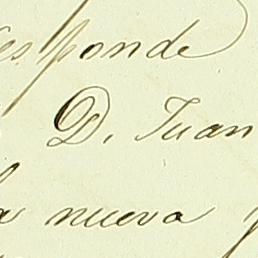 esponde
D. Juan
a nueva